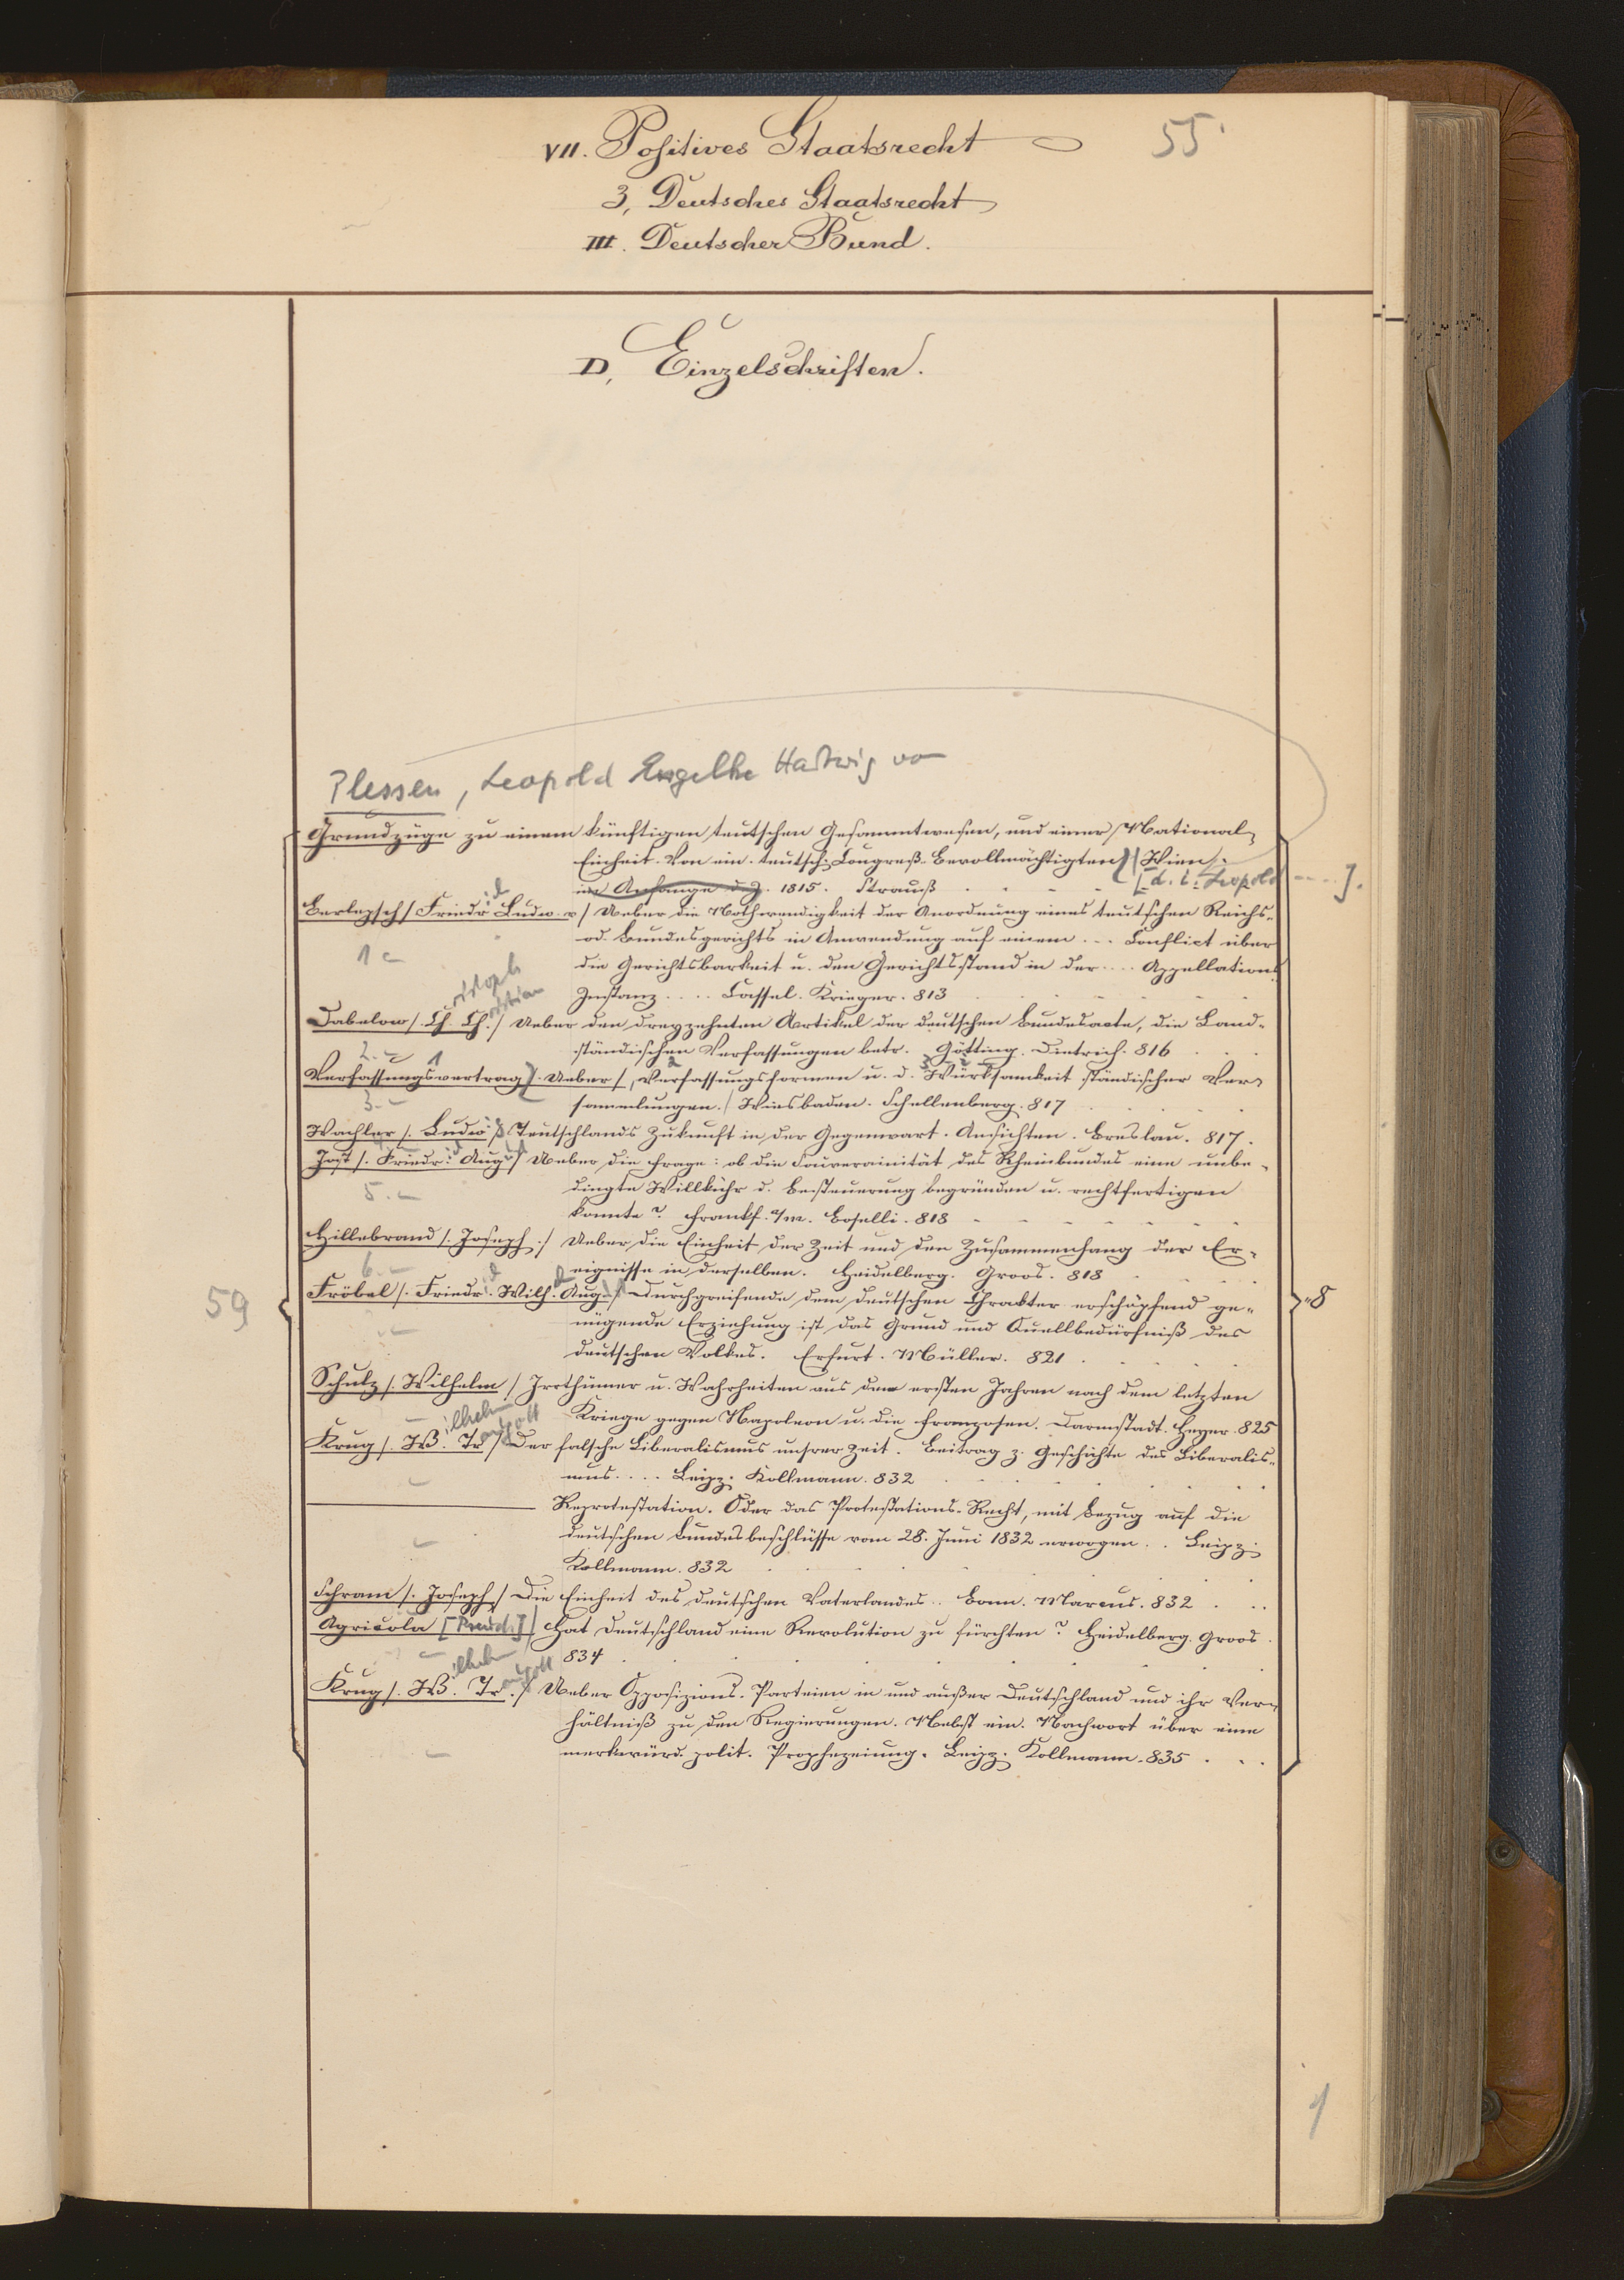 VII. Positives Staatsrecht
55
3, Deutsches Staatsrecht
III. Deutscher Bund.
D, Einzelschriften.
Plessen, Leopold Engelke Hartwig von
Grundzüge zu einem künftigen teutschen Gesammtwesen, und einer National-
Einheit. Von ein. teutsch. Congreß-Bevollmächtigten) (Wien.
[d. i. Leopold ---- ].
im Anfange d. J. 1815. Strauß
Berlepsch /. Friedrid Ludw. v/ Ueber die Nothwendigkeit der Anordnung eines teutschen Reichs-
od. Bundesgerichts in Anwendung auf einem ... Conflict über
1 die Gerichtsbarkeit u. den Gerichtsstand in der .... Appellations
Instanz .... Cassel. Krieger. 813
Dabelow /. Ch. Ch. / Ueber den dreyzehnten Artikel der deutschen Bundesacte, die Land-
2. ständischen Verfassungen betr. Götting. Dietrich. 816
Verfassungsvertrag]. Ueber /, Verfassungsformen u. d. Würksamkeit ständischer Ver-
3. sammlungen. / Wiesbaden. Schellenberg. 817
Wachler /. Ludw / Teutschlands Zukunft in der Gegenwart. Ansichten. Breslau. 817.
Jost /. Friedr. Aug / Ueber die Frage: ob die Souverainität des Rheinbundes eine unbe-
5. dingte Willkühr d. Besteuerung begründen u. rechtfertigen
konnte? Frankf. a/m. Boselli. 818
Hillebrand /. Joseph. / Ueber die Einheit der Zeit und den Zusammenhang der Er-
6. eignisse in derselben. Heidelberg. Groos. 818
59
Fröbel /. Friedr. Wilh. Aug. / Durchgreifende dem deutschen Chrakter erschöpfend ge-
8
nügende Erziehung ist das Grund und Quellbedürfniß des
deutschen Volkes. Erfurt. Müller. 821
Schulz /. Wilhelm / Irrthümer u. Wahrheiten aus den ersten Jahren nach dem letzten
Kriege gegen Napoleon u. die Franzosen. Darmstadt. Heyer. 825
Krug /. W. Tr / Der falsche Liberalismus unsrer Zeit. Beitrag z. Geschichte des Liberalis-
mus .... Leipz. Kollmann. 832
Reprotestation. Oder das Protestations-Recht, mit Bezug auf die
deutschen Bundesbeschlüsse vom 28. Juni 1832 erwogen .. Leipz.
Kollmann. 832
Schram /. Joseph / Die Einheit des deutschen Vaterlandes .. Bonn. Marcus. 832
Agricola [Pseud.] / Hat Deutschland eine Revolution zu fürchten? Heidelberg. Groos.
834
Krug /. W. Tr. / Ueber Opposizions-Parteien in und außer Deutschland und ihr Ver-
hältniß zu den Regierungen. Nebst ein. Nachwort über eine
merkwürd. polit. Prophezeiung. Leipz. Kollmann. 835
1